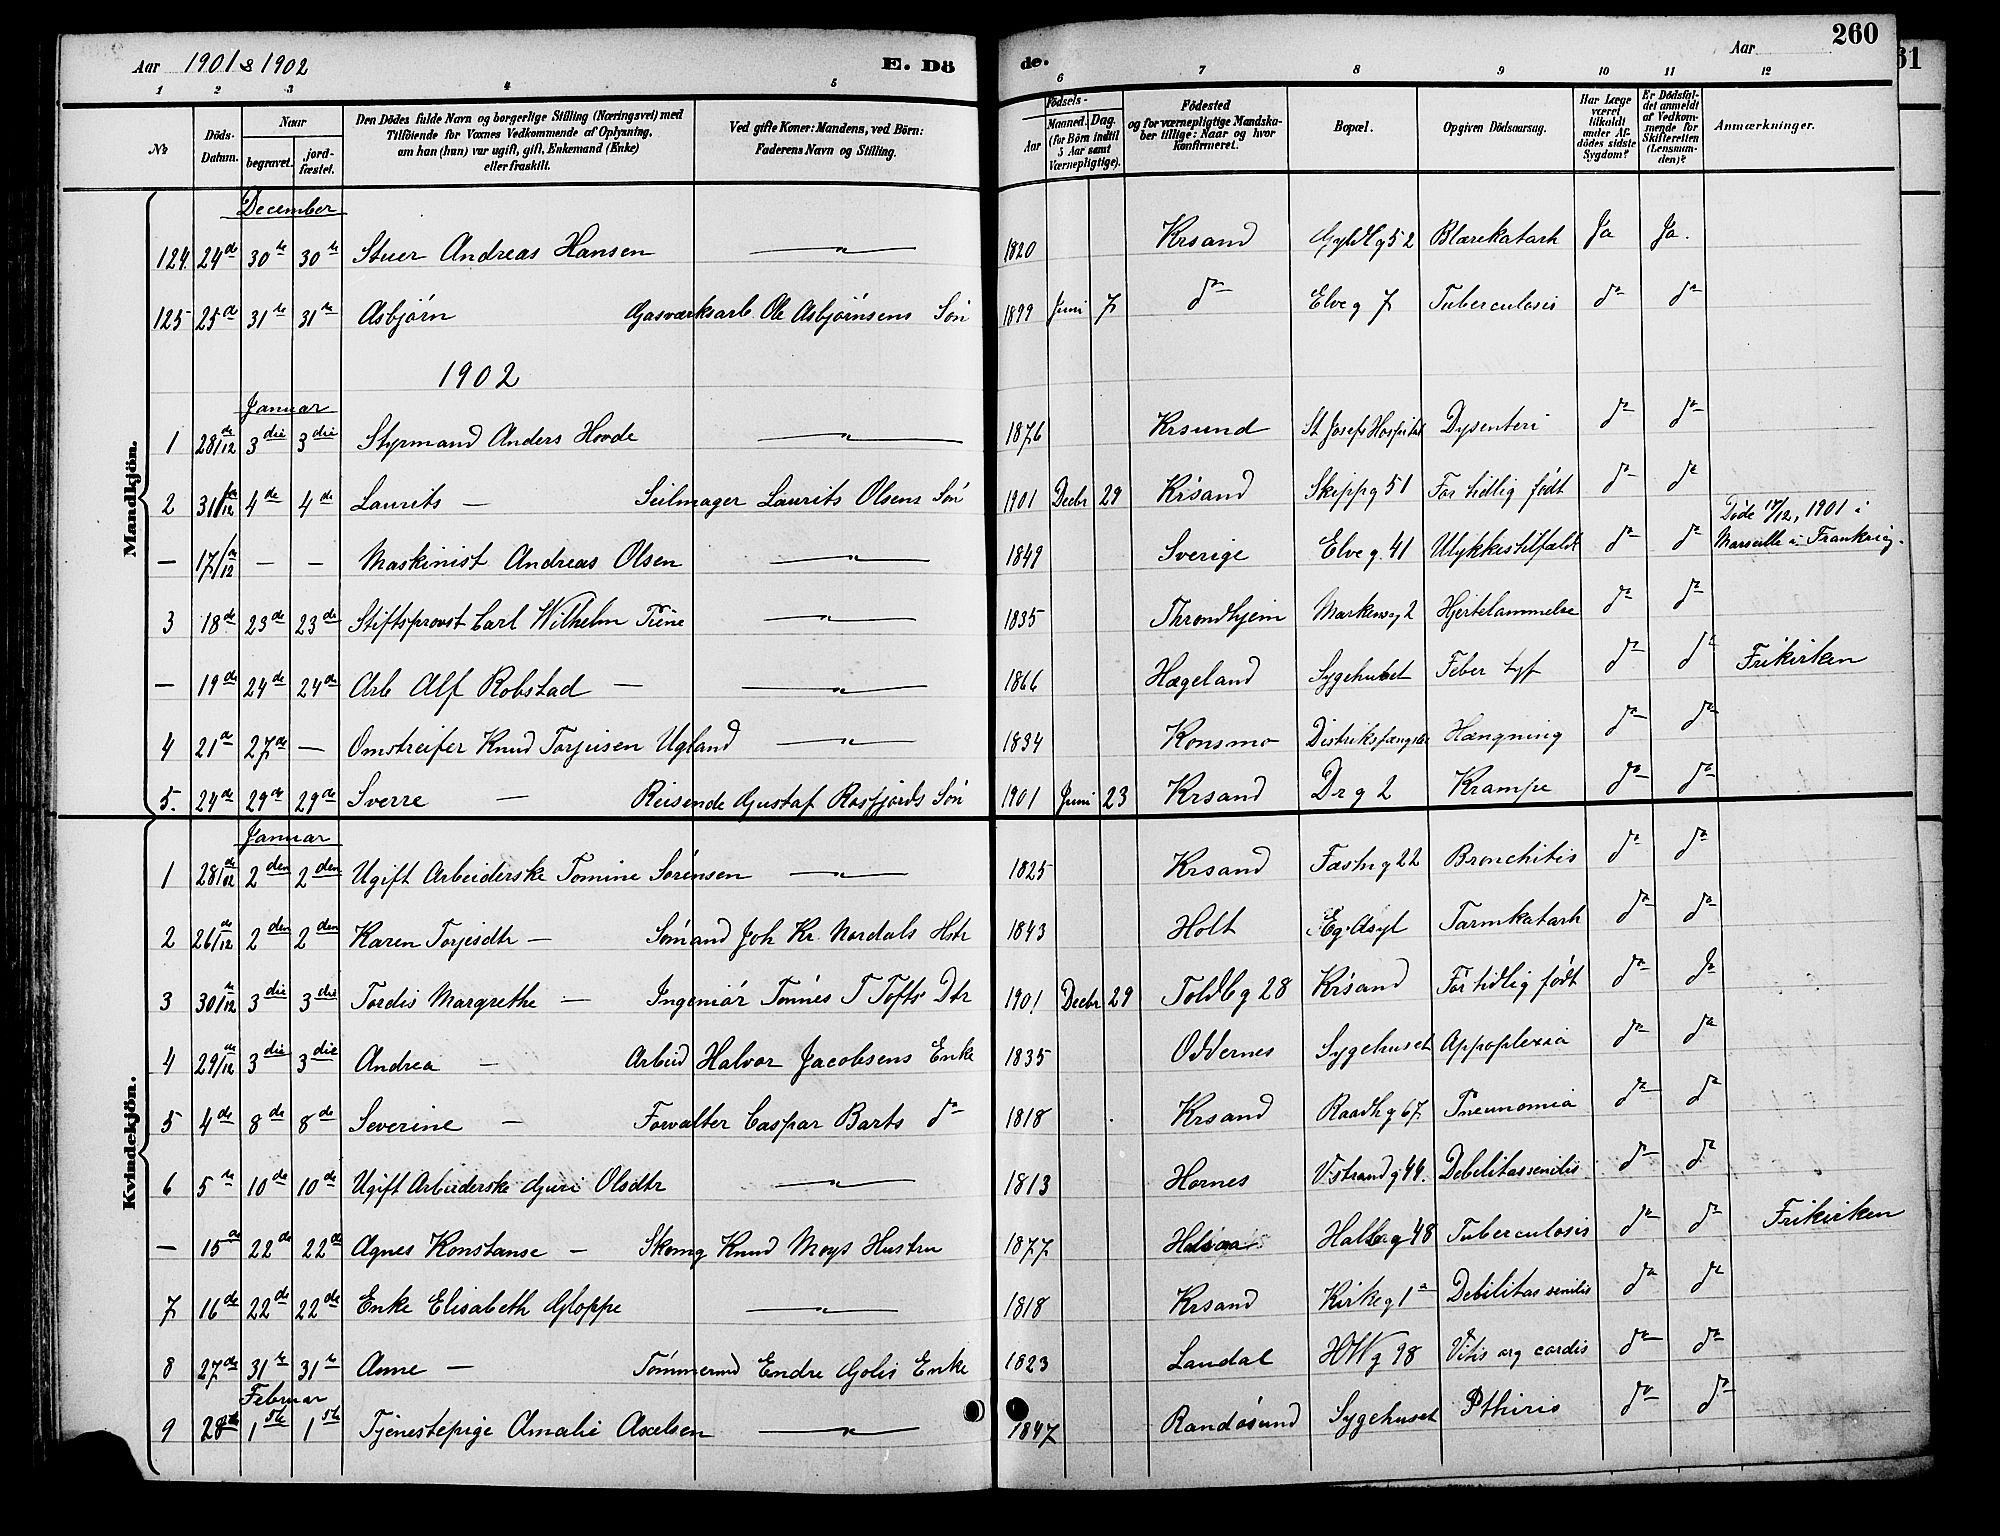 Aar 1901 & 1902 E. Dö de. Aar 260
61
1 2 3 4 5 6 7 8 9 10 11 12
No
Döds-Datum.
Naar
begravet.
jord-fæstet.
Den Dödes fulde Navn og borgerlige Stilling (Næringsvei) med
Tilföiende for Voxnes Vedkommende af Oplysning,
om han (hun) var ugift, gift, Enkemand (Enke)
eller fraskilt.
Ved gifte Koner: Mandens, ved Börn:
Faderens Navn og Stilling.
Födsels-
Aar
Maaned. Dag.
(for Börn indtil
5 Aar samt
Værnepligtige).
Födested
og for værnepligtige Mandska-
ber tillige: Naar og hvor
konfirmeret.
Bopæl.
Opgiven Dödsaarsag.
Har Læge
været
tilkaldt
under Af-
dödes sidste
Sygdom?
Er Dödsfal-
det anmeldt
af Vedkom-
mende for
Skifteretten
(Lensman-
den)?
Anmærkninger.
Mandkjön.
December
124. 24de 30te 30te Stuer Andreas Hansen — " — 1820 Krsand Gyldlg 52 Blærekatarh Ja Ja.
125 25de 31te 31te Asbjørn Gasværksarb. Ole Asbjørnsens Søn 1899 Juni 7 do Elveg 7 Tuberculosis do do
1902
Januar
1 28de/12 3die 3die Styrmand Anders Hovde — " — 1876 Krsund St Josefs Hospital Dysenteri do do
2 31te/12 4de 4de Laurits — Seilmager Laurits Olsens Søn 1901 Decbr 29 Krsand Skippg 51 For tidlig født do do
— 17de/12 — — Maskinist Andreas Olsen — " — 1849 Sverige Elveg. 41 Ulykkestilfældt do do Døde 17/12, 1901 i
Marseille i Frankrig.
3 18de 23de 23de Stiftsprovst Carl Wilhelm — " — 1835 Throndhjem Markensg 2 Hjertelammelse do do
— 19de 24de 24de Arb Alf Robstad — — " — 1866 Hægeland Sygehuset Feber tyf do do Frikirken
4 21de 27de — Omstreifer Knud Torjeisen Ugland — " — 1834 Konsmo Distriksfængslet Hængning do do
5. 24de 29de 29de Sverre — Reisende Gustaf Rosfjords Søn 1901 Juni 23 Krsand Dr g 2 Krampe do do
Kvindekjön.
Januar
1 28de/02 2den 2den Ugift Arbeiderske Tomine Sørensen — " — 1825 Krsand Fæstng 22 Bronchitis do do
2 26de/12 2den 2den Karen Torjesdtr — Sømand Joh Kr. Nordals Hstr 1843 Holt Eg. Asyl Tarmkatarh do do
3 30te/12 3die 3die Tordis Margrethe — Ingeniør Tønnes T Tofts Dtr 1901 Decbr 29 Toldbg 28 Krsand For tidlig født do do
4 29de/12 3die 3die Andrea — Arbeid Halvor Jacobsens Enke 1835 Oddernes Sygehuset Appoplexia do do
5 4de 8de 8de Severine — Forvalter Caspar Barts do 1818 Krsand Raadhg 67 Pneunomia do do
6 5te 10de 10de Ugift Arbeiderske Guri Olsdtr — " — 1813 Hornes V. strandg 44. Debelitas senilis do do
— 15de 22de 22de Agnes Konstanse — Skomg Knud Moys Hustru 1877 Halbg 48 Tuberculosis do do Frikirken
7 16de 22de 22de Enke Elisabeth Gloppe — " — 1818 Krsand Kirkeg 1a Debilitas senilis do do
8 27de 31te 31te Anne — Tømmermd Endre Golis Enke 1823 Laudal HWg 98 Vitis org cordis do do
Februar
9 28de 1ste 1ste Tjenestepige Amalie Axelsen — " — 1847 Randøsund Sygehuset Pthisis do do